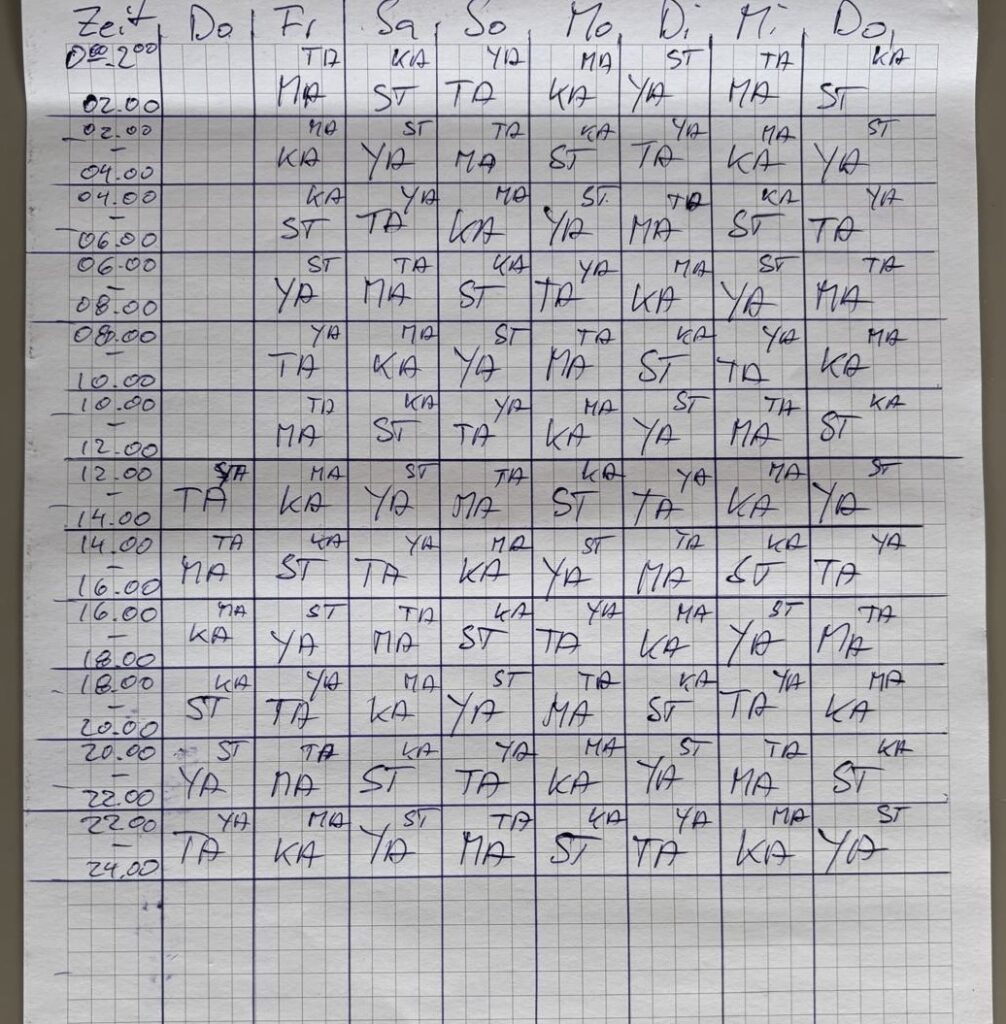 Zeit Do Fr Sa So Mo Di Mi Do
0⁰⁰-2⁰⁰ TA KA YA MA ST TA KA
02.00 MA ST TA KA YA MA ST
02.00 MA ST TA KA YA MA ST
–
04.00 KA YA MA ST TA KA YA
04.00 KA YA MA ST TA KA YA
–
06.00 ST TA KA YA MA ST TA
06.00 ST TA KA YA MA ST TA
–
08.00 YA MA ST TA KA YA MA
08.00 YA MA ST TA KA YA MA
–
10.00 TA KA YA MA ST TA KA
10.00 TA KA YA MA ST TA KA
–
12.00 MA ST TA KA YA MA ST
12.00 MA ST TA KA YA MA ST
–
14.00 TA KA YA MA ST TA KA YA
14.00 TA KA YA MA ST TA KA YA
–
16.00 MA ST TA KA YA MA ST TA
16.00 MA ST TA KA YA MA ST TA
–
18.00 KA YA MA ST TA KA YA MA
18.00 KA YA MA ST TA KA YA MA
–
20.00 ST TA KA YA MA ST TA KA
20.00 ST TA KA YA MA ST TA KA
–
22.00 YA MA ST TA KA YA MA ST
22.00 YA MA ST TA KA YA MA ST
–
24.00 TA KA YA MA ST TA KA YA